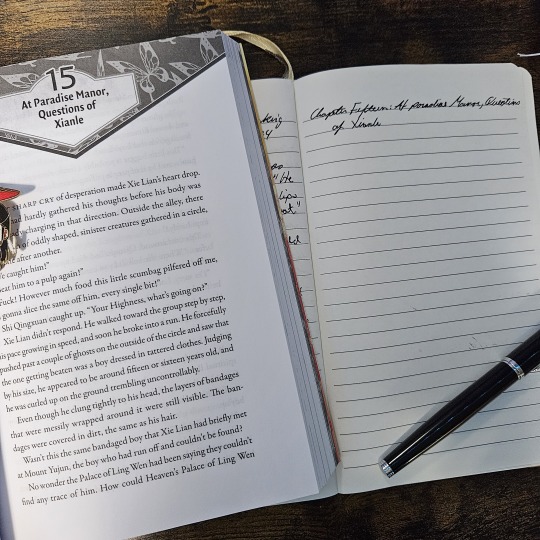 15
At Paradise Manor,
Questions of
Xianle
SHARP CRY of desperation made Xie Lian's heart drop.
had hardly gathered his thoughts before his body was
charging in that direction. Outside the alley, there
of oddly shaped, sinister creatures gathered in a circle,
after another.
caught him!"
eat him to a pulp again!"
Fuck! However much food this little scumbag pilfered off me,
gonna slice the same off him, every single bit!"
Shi Qingxuan caught up. "Your Highness, what's going on?"
Xie Lian didn't respond. He walked toward the group step by step,
his pace growing in speed, and soon he broke into a run. He forcefully
pushed past a couple of ghosts on the outside of the circle and saw that
the one getting beaten was a boy dressed in tattered clothes. Judging
by his size, he appeared to be around fifteen or sixteen years old, and
he was curled up on the ground trembling uncontrollably.
Even though he clung tightly to his head, the layers of bandages
that were messily wrapped around it were still visible. The ban-
dages were covered in dirt, the same as his hair.
Wasn't this the same bandaged boy that Xie Lian had briefly met
at Mount Yujun, the boy who had run off and couldn't be found?
No wonder the Palace of Ling Wen had been saying they couldn't
find any trace of him. How could Heaven's Palace of Ling Wen
"He
Chapter Fifteen: At Paradise Manor, Questions
of Xianle